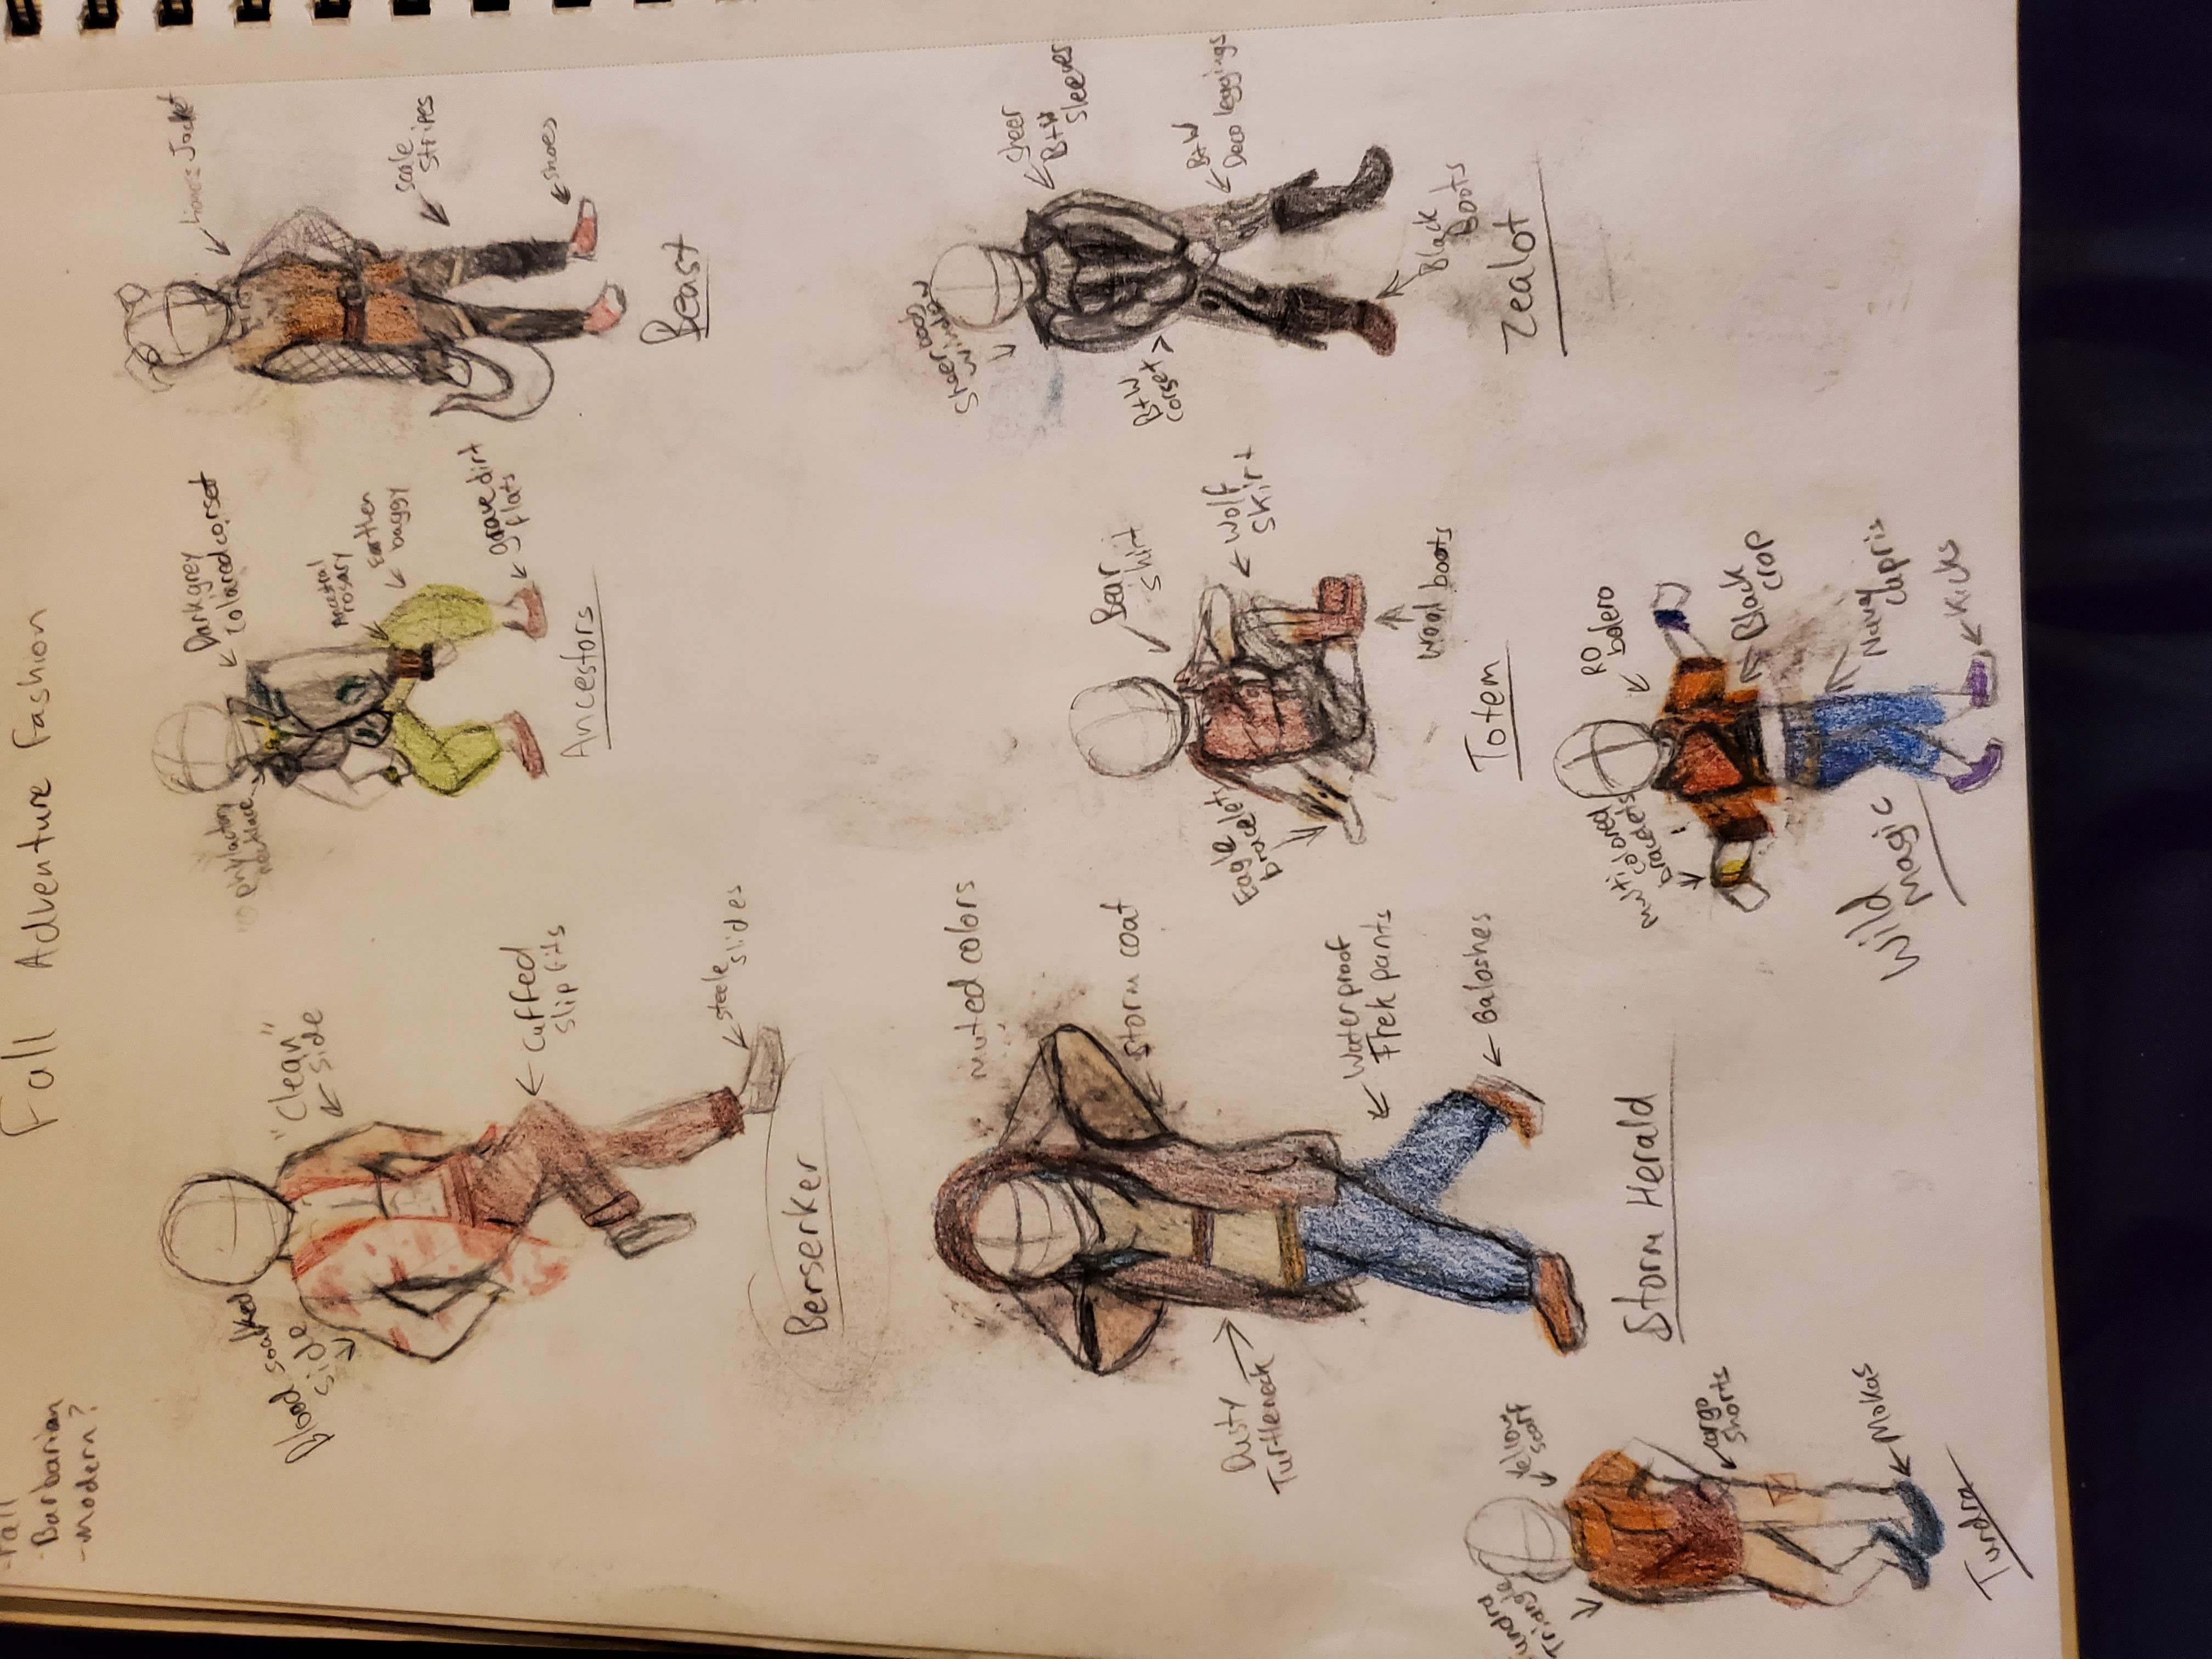 -Fall
Barbarian
-Modern?
Fall Adventure Fashion
Blood soaked
side
"Clean"
side
Cuffed
slip fits
steele
slides
Berserker
phylactory
necklace
Dark grey
colared corset
Ancestral
rosary
Earthen
baggy
grave dirt
flats
Ancestors
Jacket
scale
stripes
shoes
Beast
muted colors
storm coat
Dusty
Turtleneck
Waterproof
Trek pants
Galoshes
Storm Herald
Bear
shirt
Eagle
bracelets
Wolf
skirt
Wool boots
Totem
Sheer boob
window
Sheer
B+W
sleeves
B+W
corset
B+W
Deco leggings
Black
Boots
Zealot
Tundra
Triangle
Yellow
scarf
cargo
shorts
Mokas
Tundra
Multi
colored
bracelets
RO
bolero
Black
crop
Navy
capris
Kicks
Wild
Magic